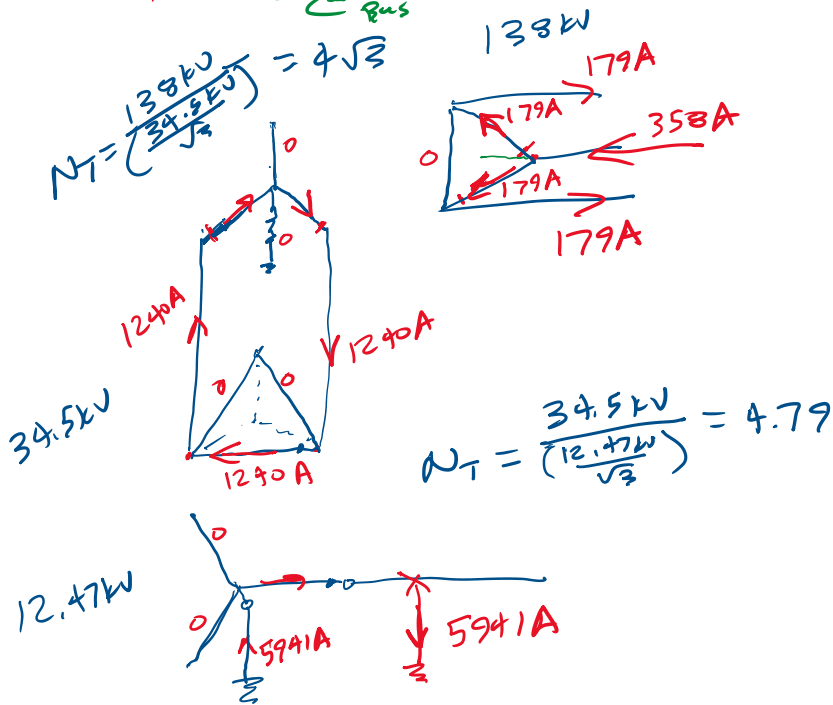 Bus
138kV
N_T = 138kV / (34.5kV / √3) = 4√3
179A
179A
358A
0
179A
179A
0
0
1240A
1240A
0
0
34.5kV
1240A
N_T = 34.5kV / (12.47kV / √3) = 4.79
12.47kV
0
0
5941A
5941A